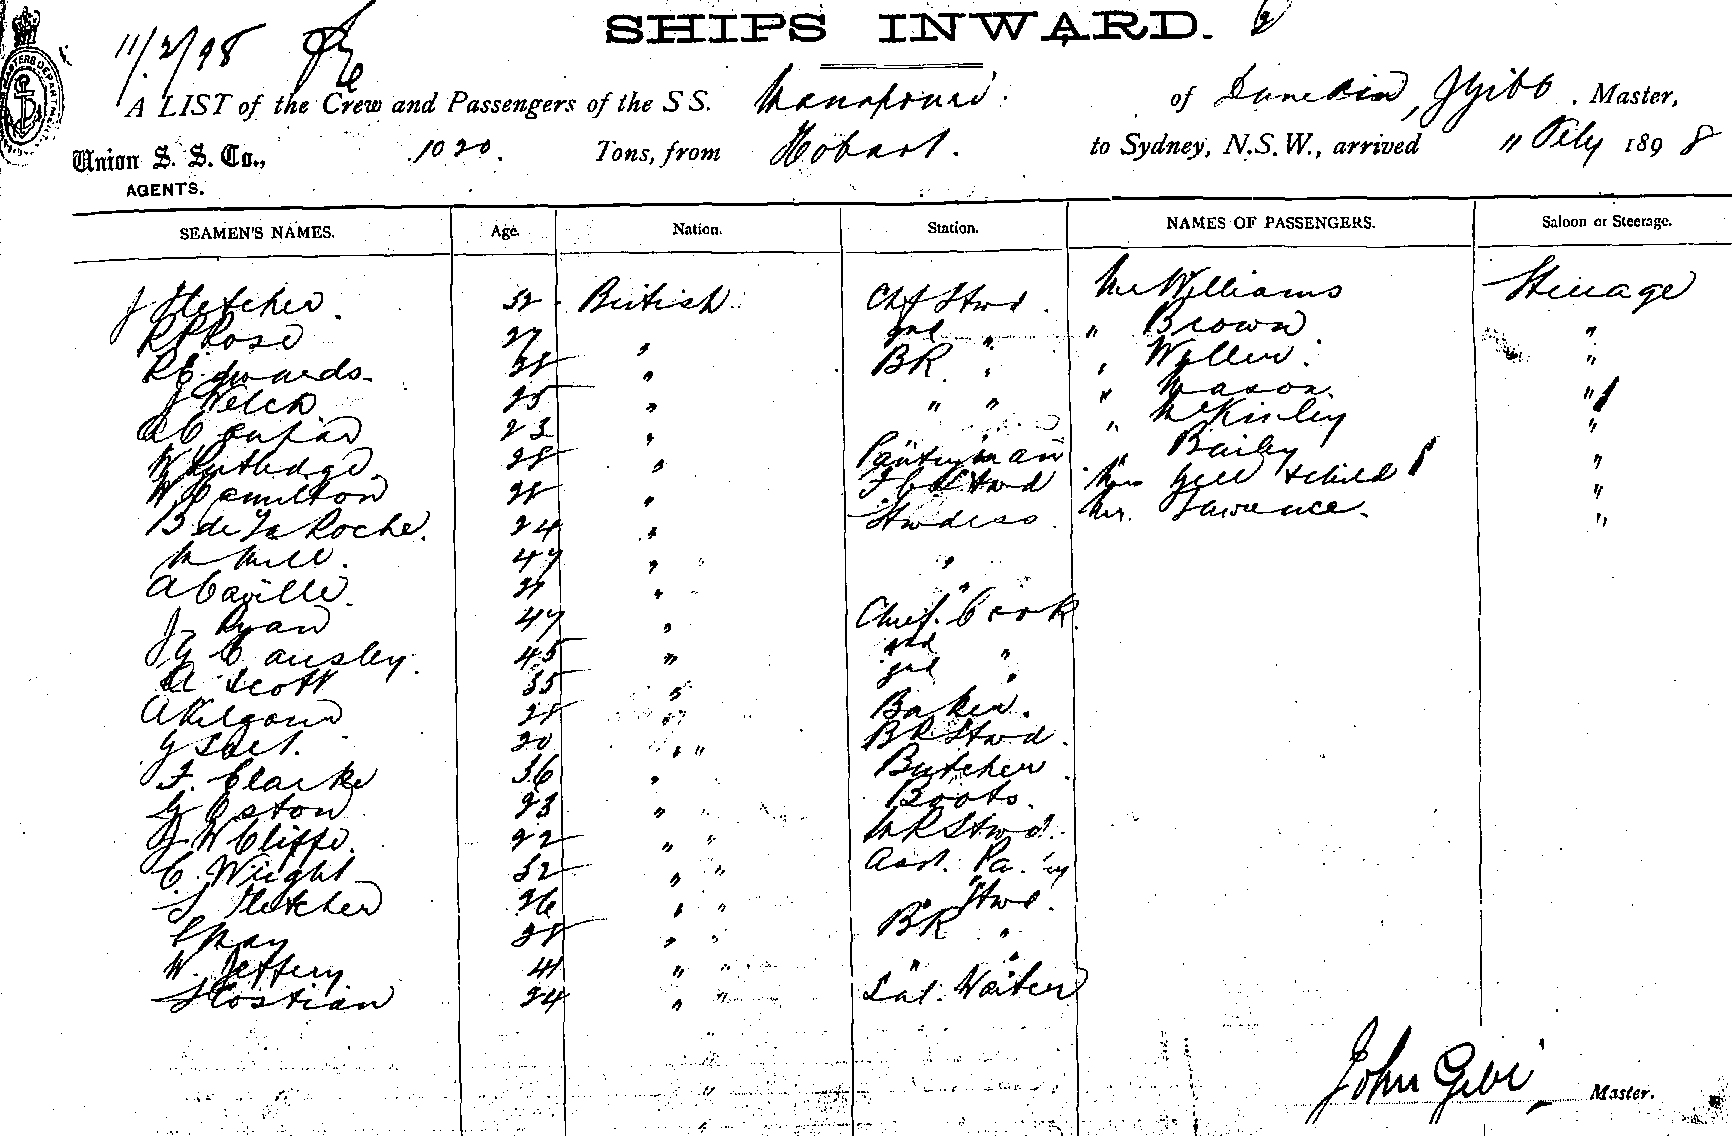 SHIPS INWARD.
11/2/98
A LIST of the Crew and Passengers of the S S. Manapouri of Dunedin, J Gibb. Master,
Union S. S. Co., 1020. Tons, from Hobart. to Sydney, N.S.W., arrived " Feby 1898
AGENTS.
SEAMEN'S NAMES. Age. Nation. Station. NAMES OF PASSENGERS. Saloon or Steerage.
J Fletcher. 32 British Chf Stwd. Mr Williams Steerage
R P Rose 27 " 2nd " " Brown "
R Edwards. 28 " BR " " "
J Welch 25 " " " " Mason. "
23 " " McKinley "
W Rutledge. 28 " Pantryman " Bailey "
W Hamilton 28 " F C Stwd Mrs Gill & child "
B de La Roche. 24 " Stwdess. Mr. Lawrence. "
M Mill. 47 " "
A Caville. "  "
J. Ryan 47 " Chief. Cook
J G Cansley. 45 " 2nd "
A Scott 35 " 3rd "
A Kilgour 28 " Baker.
20 " BR Stwd.
F. Clarke 36 " Butcher
G Easton 23 " Boots.
J W Cliffe. 22 " " Stwd.
C. Wright 32 " " Asst. Pa. "
J Fletcher 26 " " " Stwd.
C Ray 28 " " BR "
W. Jeffery. 41 " " " "
J Costian 24 " " Sal. Waiter
"
John Gibb, Master.